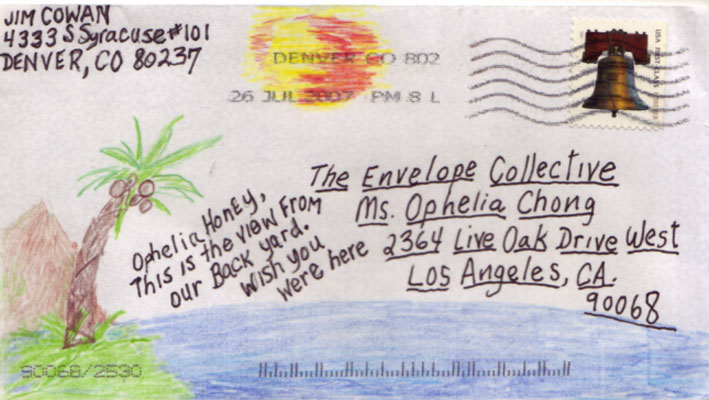 JIM COWAN
4333 S Syracuse #101
DENVER, CO 80237
DENVER CO 802
26 JUL 2007 PM 8 L
The Envelope Collective
Ms. Ophelia Chong
2364 Live Oak Drive West
Los Angeles, CA.
90068
Ophelia Honey,
This is the view From
our Back yard.
Wish you
were here
90068/2530